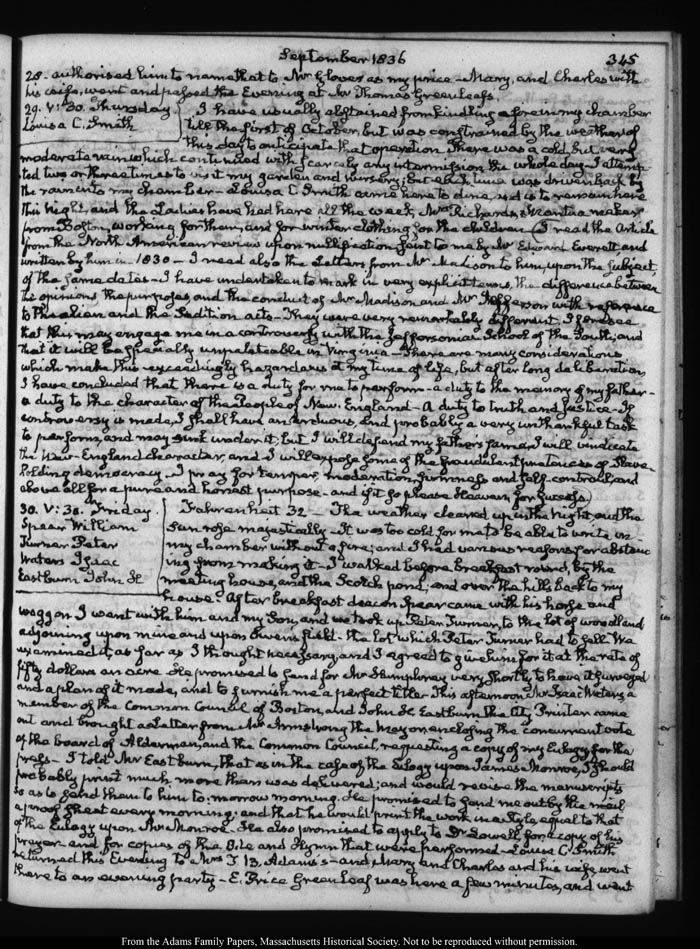 September 1836
345
28. authorised him to name that to Mr Glover as my price – Mary, and Charles with
his wife, went and passed the Evening at Mr Thomas Greenleafs
29. V: 30. Thursday
Louisa C. Smith
I have usually abstained from kindling a fire in my chamber
till the first of October, but was constrained by the weather of
this day to anticipate that operation. There was a cold, but very
moderate rain which continued with scarcely any intermission the whole day – I attemp
ted two or three times to visit my garden and nursery; but each time was driven back by
the rain into my chamber – Louisa C. Smith came here to dine, and is to remain here
this night, and the Ladies have had here all the week, Mrs Richards, a Mantua maker
from Boston, working for them, and for winter clothing for the children. I read the Article
from the North American review upon nullification sent to me by Mr Edward Everett, and
written by him in 1830 – I need also the Letters from Mr Madison to him, upon the subject,
of the same dates – I have undertaken to mark in very explicit terms, the difference between
the opinions, the purposes, and the conduct of Mr Madison and Mr Jefferson with reference
to the alien and the Sedition acts – They were very remarkably different. I foresee
that this may engage me in a controversy with the Jeffersonian School of the South; and
that it will be specially unpalateable in Virginia – There are many considerations
which make this exceedingly hazardous at my time of life, but after long deliberation
I have concluded that there is a duty for me to perform – a duty to the memory of my father –
a duty to the character of the People of New. England – A duty to truth and justice – If
controversy is made, I shall have an arduous, and probably a very unthankful task
to perform, and may sink under it, but I will defend my father's fame. I will vindicate
the New-England character, and I will expose some of the fraudulent pretences of Slave-
holding democracy – I pray for temper, moderation, firmness and self-controul; and
above all for a pure and honest purpose – and if it so please Heaven, for success.
30. V: 30. Friday
Spear William
Turner Peter
Waters Isaac
Eastburn John H
Fahrenheit 32 – The weather cleared up in the Night, and the
Sun rose majestically – It was too cold for me to be able to write in
my chamber without a fire; and I had various reasons for abstain
ing from making it – I walked before breakfast round, by the
meeting house, and the Scotch pond, and over the hills back to my
house. After breakfast deacon Spear came with his horse and
waggon I went with him and my Son, and we took up Peter Turner, to the lot of woodland
adjoining upon mine and upon Owens field – the lot which Peter Turner had to sell. We
examined it, as far as I thought necessary, and I agreed to give him for it at the rate of
fifty dollars an acre. He promised to send for Mr Humphrey very shortly to have it surveyed
and a plan of it made, and to furnish me a perfect title – This afternoon Mr Isaac Waters, a
member of the Common Council of Boston, and John H Eastburn the City Printer came
out and brought a Letter from Mr Armstrong the Mayor enclosing the concurrent vote
of the board of Alderman, and the Common Council, requesting a copy of my Eulogy, for the
press – I told Mr Eastburn, that as in the case of the Eulogy upon James Monroe, I should
probably print much more than was delivered; and would revise the manuscripts
so as to send them to him to-morrow morning. He promised to send me out by the mail
a proof sheet every morning; and that he would print the work in a style equal to that
of the Eulogy upon Mr Monroe. He also promised to apply to Dr Lowell for a copy of his
prayer – and for copies of the Ode and Hymn that were performed – Louisa C. Smith
returned this Evening to Mrs T. B. Adams's – and Mary and Charles and his wife went
there to an evening party – E. Price Greenleaf was here a few minutes, and went
From the Adams Family Papers, Massachusetts Historical Society. Not to be reproduced without permission.